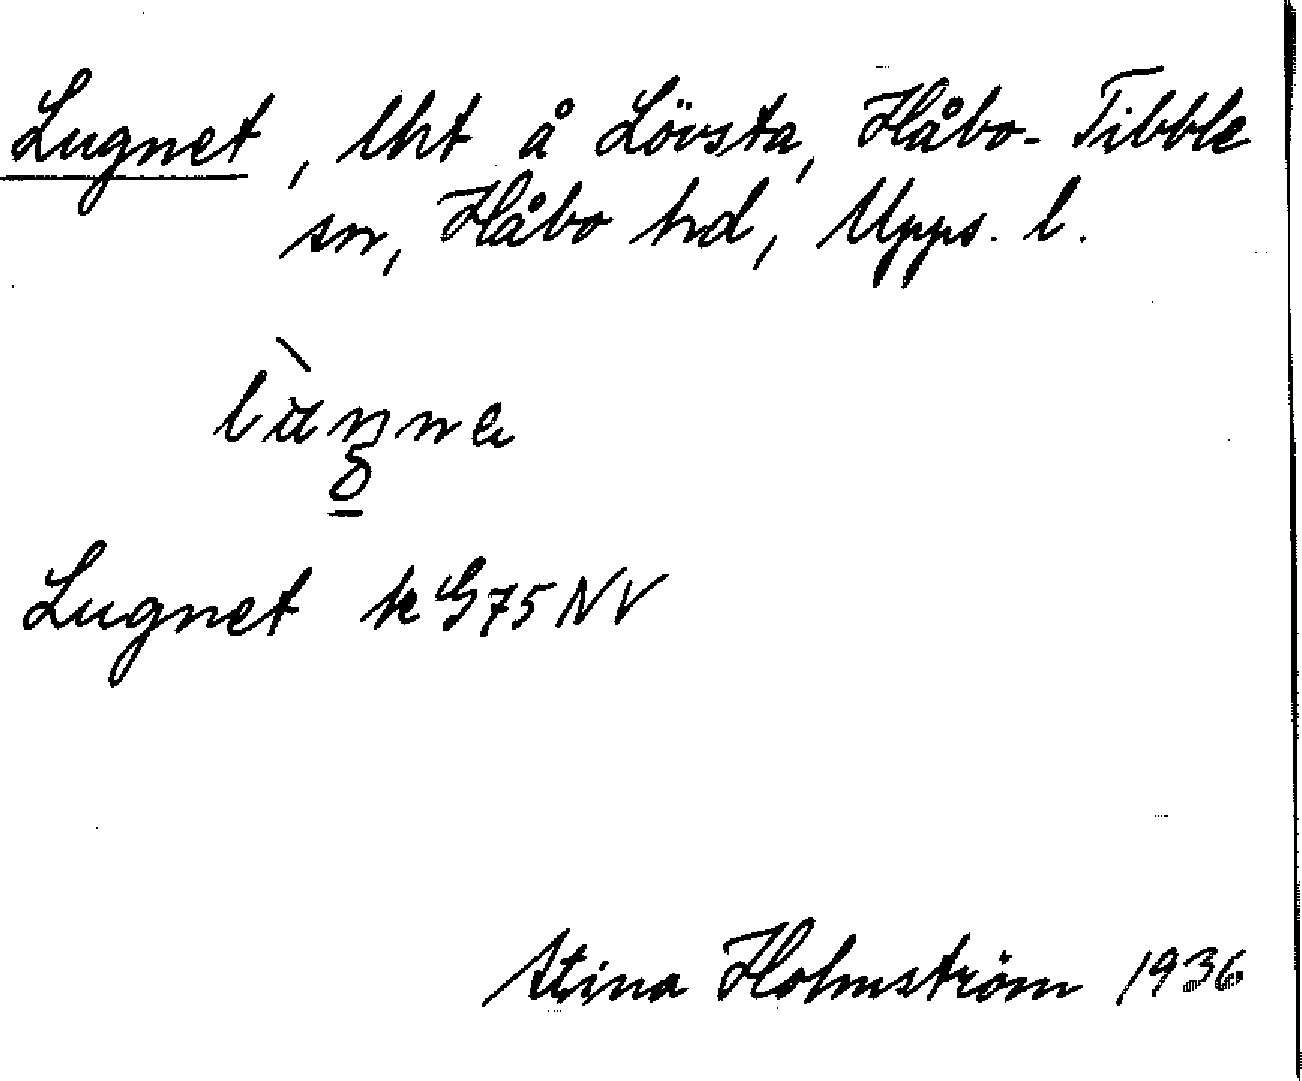 Lugnet, lht å Lövsta, Håbo-Tibble
sn, Håbo hd, Upps. l.
Lugnet k G75NV
Stina Holmström 1936